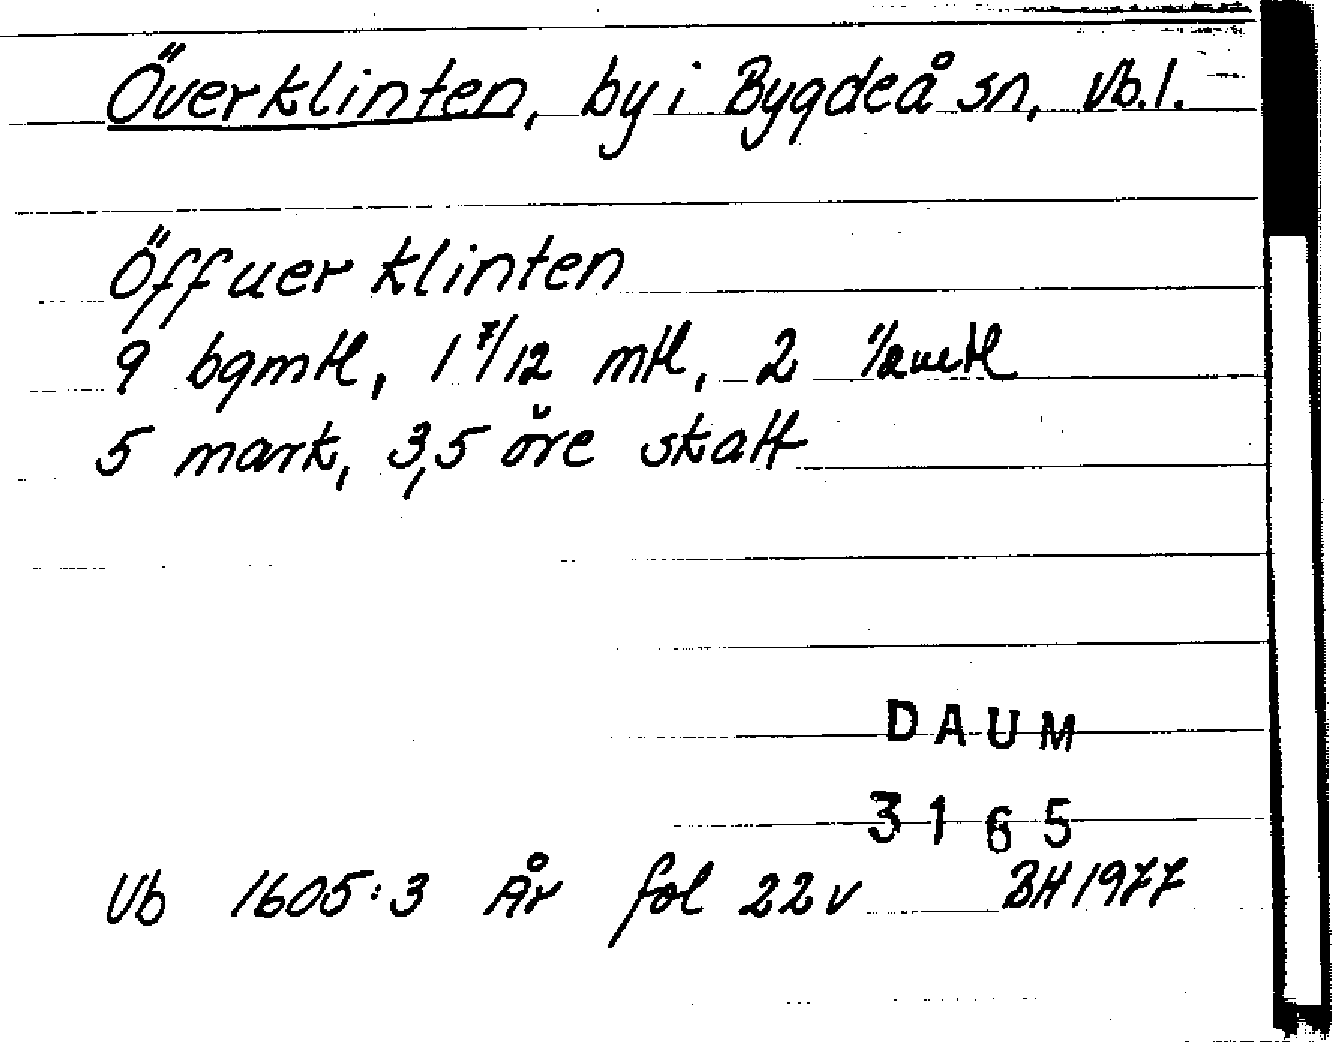 Överklinten, by i Bygdeå sn, Vb.l.
Öffuer klinten
9 bgmtl, 1 7/12 mtl, 2 1/2 mtl
5 mark, 3,5 öre skatt
DAUM
3165
Vb 1605:3 År fol 22v BH 1977